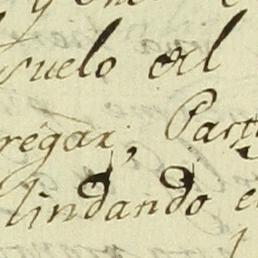 suelo del
regar, Part
lindando e